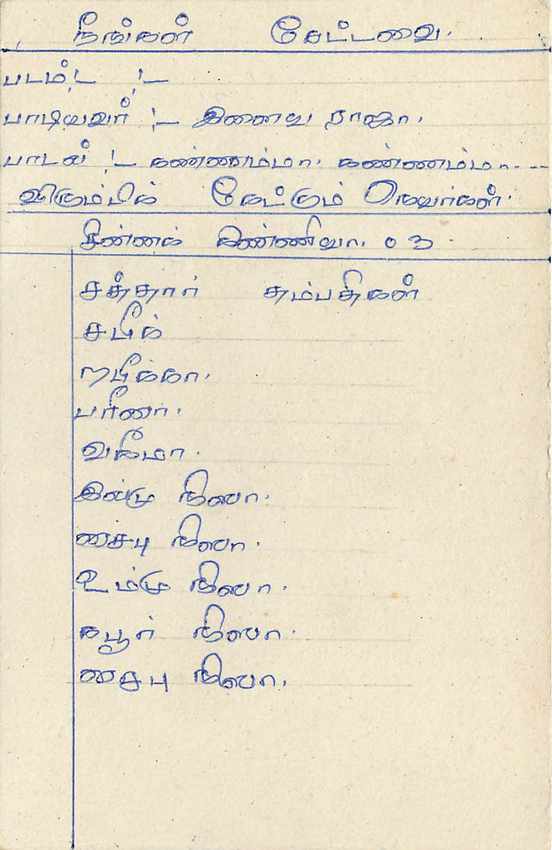 நீங்கள் கேட்டவை.
படம் :-
பாடியவர் :- இளைய ராஜா.
பாடல் :- கண்ணம்மா. கண்ணம்மா...
விரும்பிக் கேட்கும் நேயர்கள்.
கிண்ணியா. 03.
சத்தார் தம்பதிகள்
சபீக்
றபீக்கா.
பரீனா.
வகீமா.
இம்மு நிஸா.
சைபு நிஸா.
உம்மு நிஸா.
கபூர் நிஸா.
சைபு நிஸா.